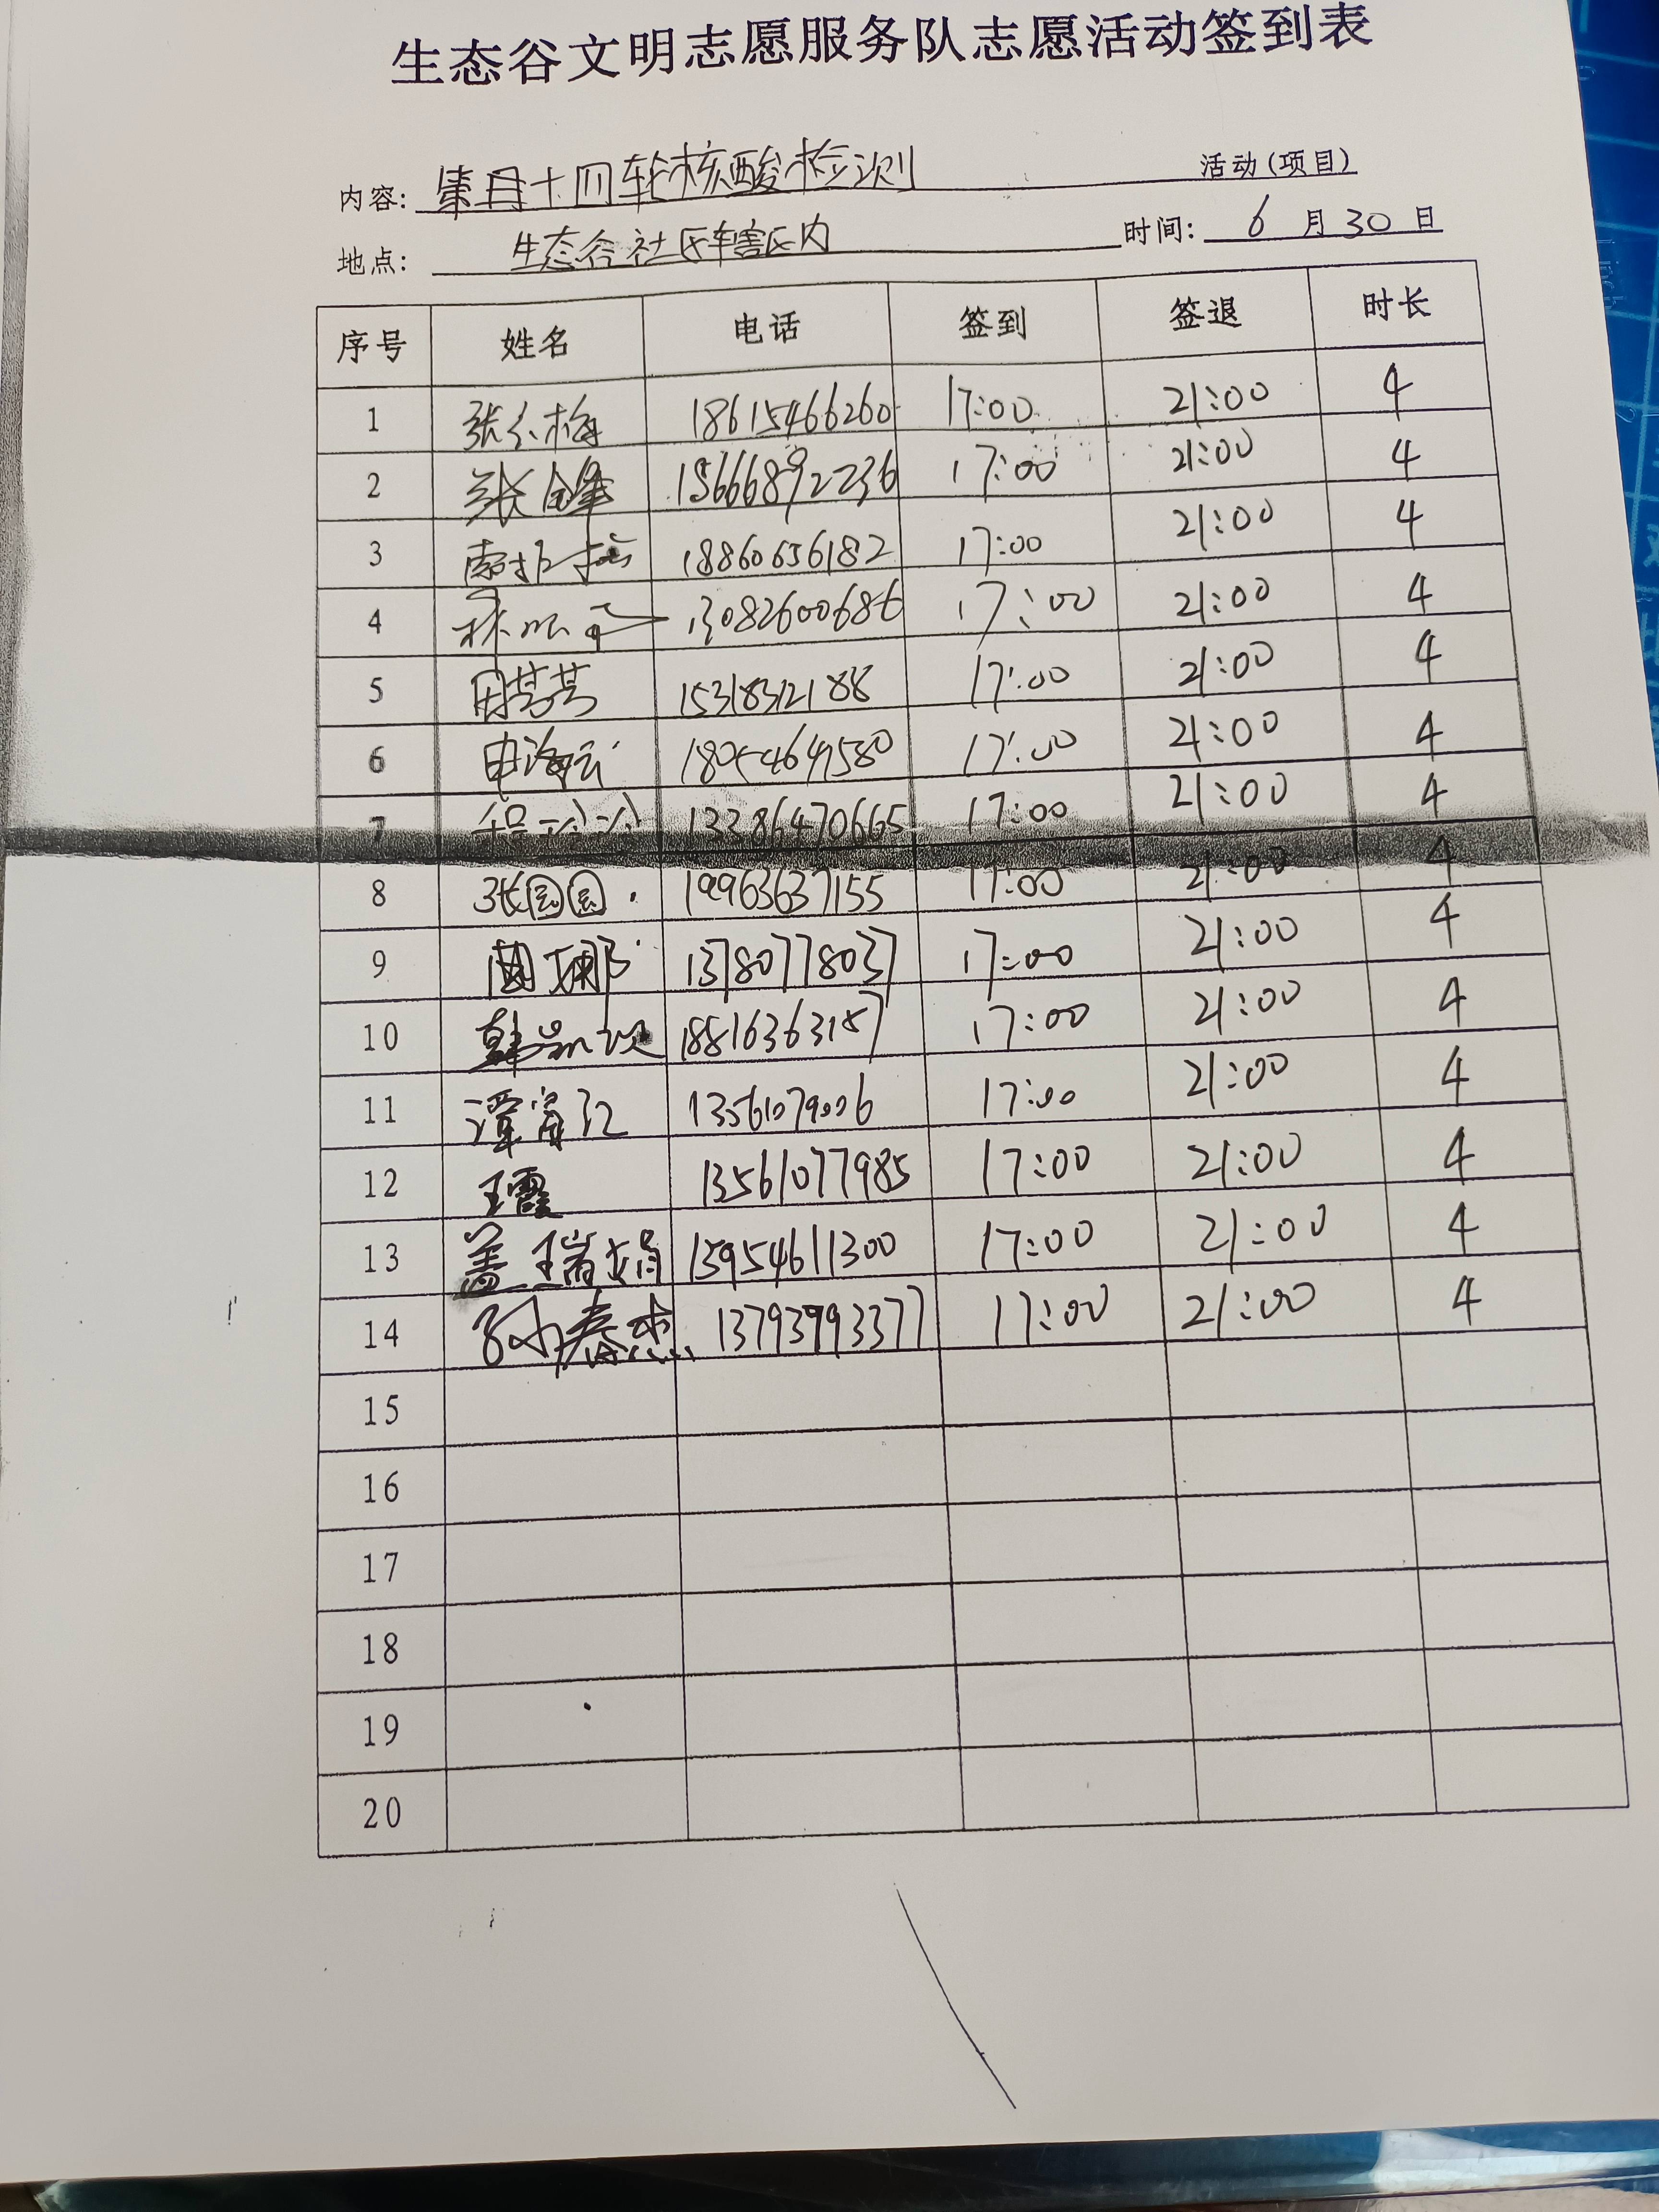 生态谷文明志愿服务队志愿活动签到表
内容: 十四轮核酸检测 活动(项目)
地点: 生态谷社区辖区内 时间: 6 月 30 日
序号 姓名 电话 签到 签退 时长
1 张 梅 18615466260 17:00 21:00 4
2 张 15666892236 17:00 21:00 4
3 18860656182 17:00 21:00 4
4 林 13082600686 17:00 21:00 4
5 15318312188 17:00 21:00 4
6 申海云 17:00 21:00 4
7 程 13386470665 17:00 21:00 4
8 张园园 19963637155 17:00 21:00 4
9 娜 13780778037 17:00 21:00 4
10 韩 18816363187 17:00 21:00 4
11 13561079006 17:00 21:00 4
12 王霞 13561077985 17:00 21:00 4
13 盖瑞娟 15954611300 17:00 21:00 4
14 孙春杰 13793993377 17:00 21:00 4
15
16
17
18
19
20